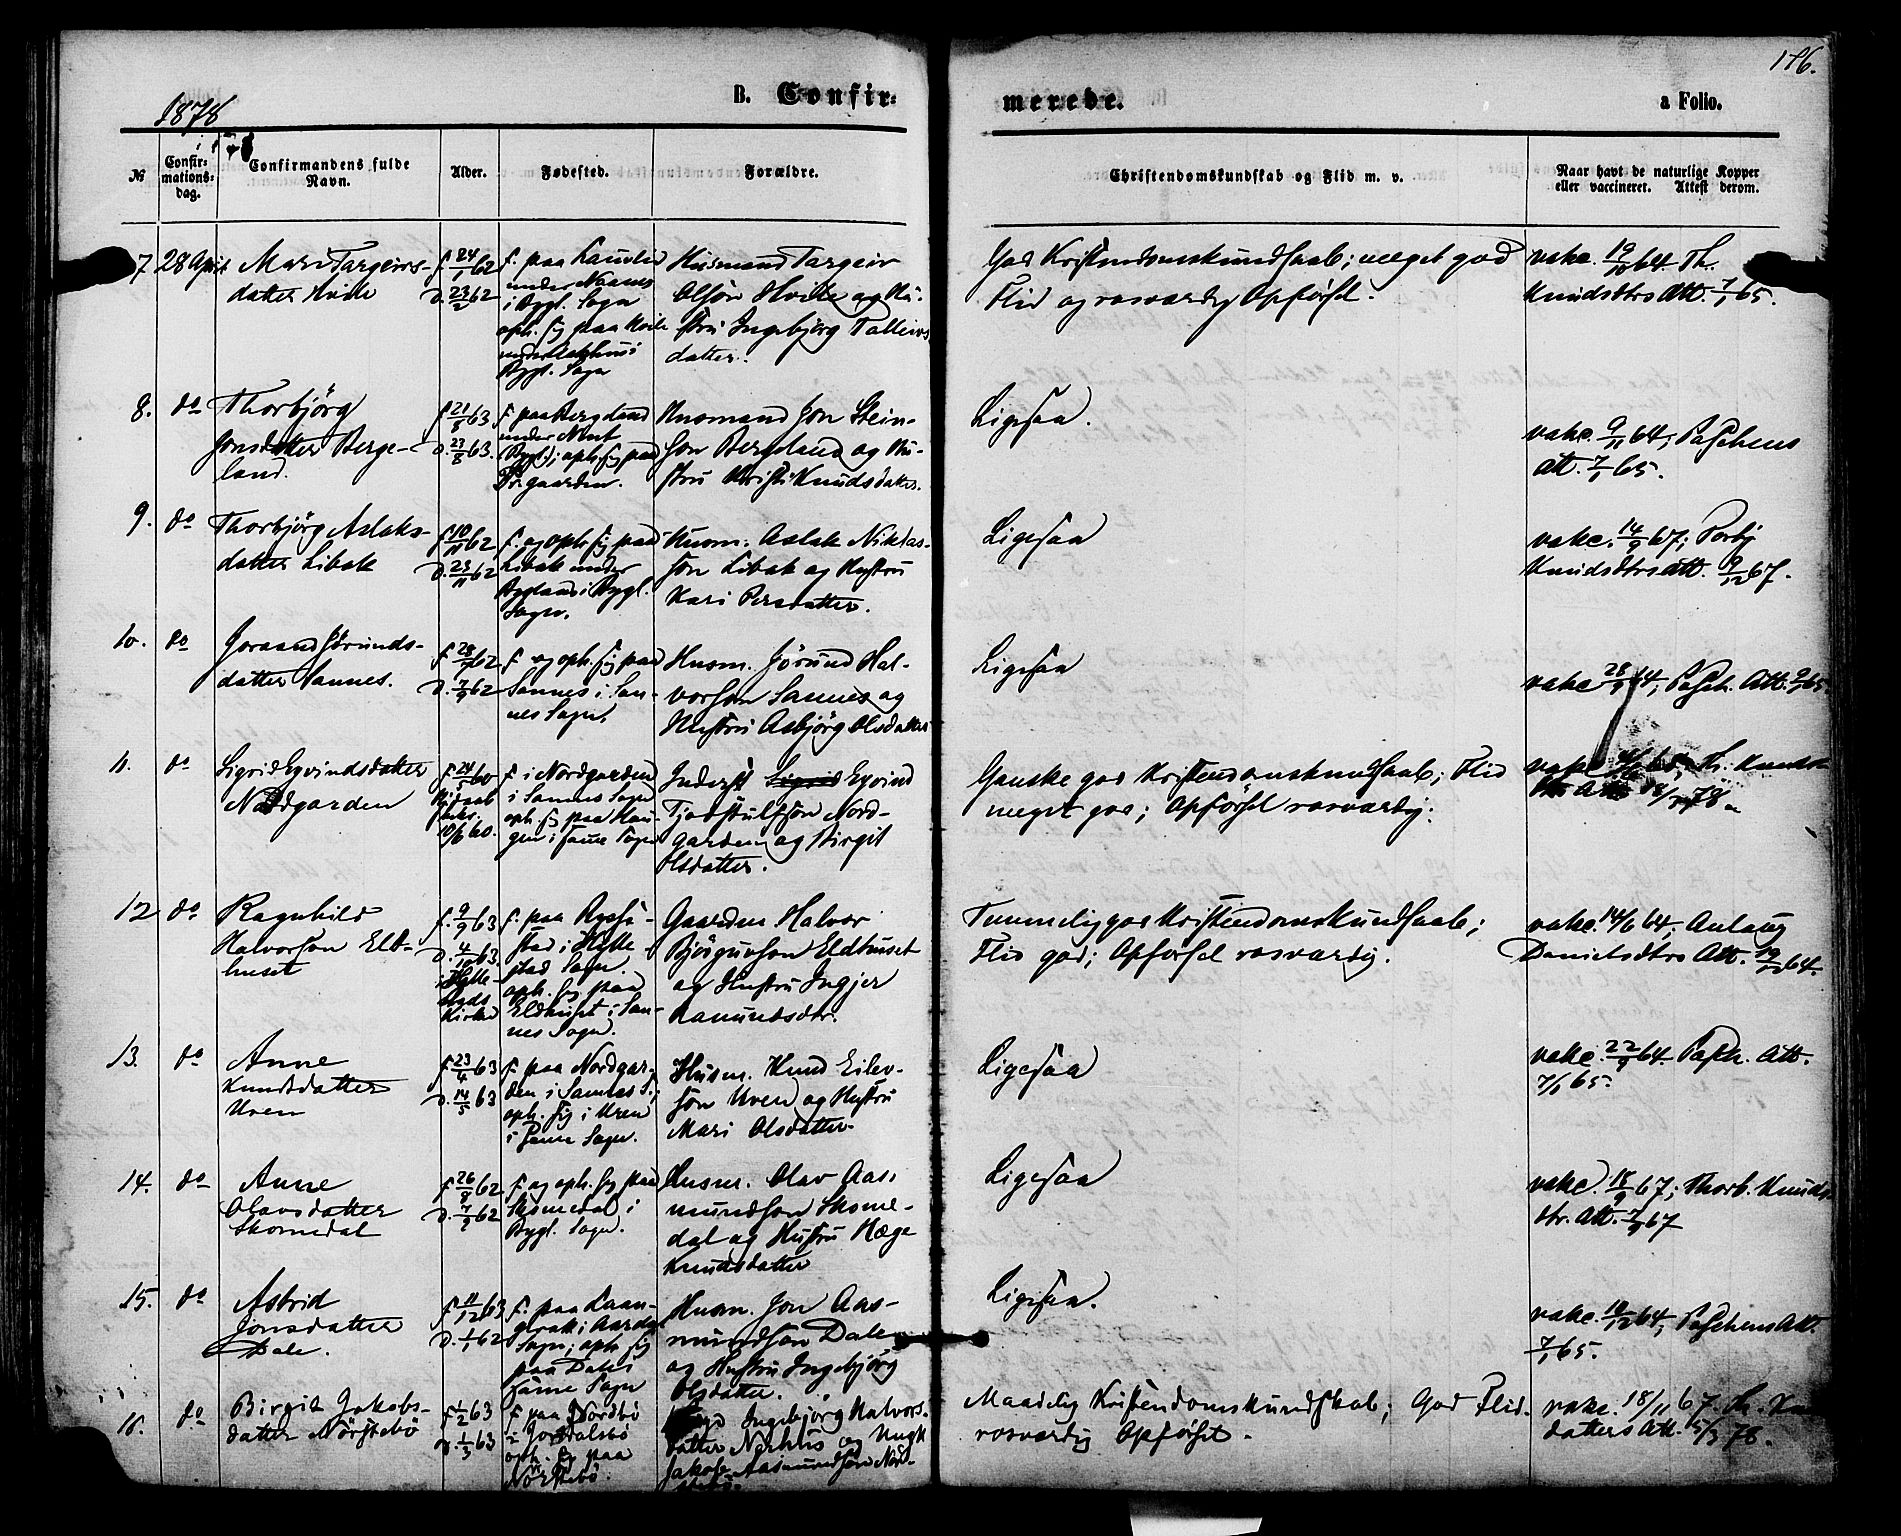 176.
1878
B. Confir-
merede.
a Folio.
№
Confir-
mations-
dag.
Confirmandens fulde
Navn.
Alder.
Fødested.
Forældre.
Christendomskundskab og Flid m. v.
Naar havt de naturlige Kopper
eller vaccineret. Attest derom.
7 28 April
Mari Targeirs-
datter Hvile
f. 24/1 62
d. 23/2 62
i Bygl. Sogn
oph. sig paa Hvile
Bygl. Sogn
Husmand Targeir
Olsøn Hvile og Hu-
stru Ingebjörg Talleivs
datter.
God Kristendomskundskab; meget god
Flid og rosværdig Opførsel.
vakc. 19/10 64. Th.
Knudsdtrs Att. 7/1 65.
8. do
Thorbjörg
Jonsdatter Berge-
land.
f. 21/6 63
d. 23/8 63.
f. paa Bergeland
Bygl.; oph. sig paa
Pr.gaarden.
Husmand Jon Stein-
søn Bergeland og Hu-
stru Kristi Knudsdatter.
Ligesaa.
vakc. 9/11 64; Paschens
Att. 7/1 65.
9. do
Thorbjörg Aslaks-
datter Libak
f. 10/11 62
d. 23/11 62
f. og oph. sig paa
Libak under
Bygland i Bygl.
Sogn.
Husm. Aslak Niklas-
søn Libak og Hustru
Kari Persdatter.
Ligesaa
vakc. 14/9 67; Torbj
Knudsdtrs Att. 9/12 67.
10. do
Joraand Jörunds-
datter Sannes.
d. 7/9 62
f. og oph. sig paa
Sannes i San-
nes Sogn.
Husm. Jörund Hal-
vorson Sannes og
Hustru Asbjörg Olsdatter
Ligesaa
vakc. 28/9 64; Pasch. Att. 9/1 65
11. do
Sigrid Eyvindsdatter
Nordgarden
10/6 60.
f. i Nordgarden
i Sannes Sogn
oph. sig paa Hau-
gen i samme Sogn
Inderst Sigrid Eyvind
Tjodstulfsøn Nord-
garden og Birgit
Olsdatter.
Ganske god Kristendomskundskab; Flid
meget god; Opførsel rosværdig.
12 do
Ragnhild
Halvorson Eld-
huset
f. 9/9 63
d. 4/10 63
i Hylle-
stads
Kirke
f. paa Rysse-
stad i Hylle-
stad Sogn.
oph. sig paa
Eldhuset i San-
nes Sogn.
Gaardm. Halvor
Björgunson Eldhuset
og Hustru Ingjer
Ramundsdtr.
Temmelig god Kristendomskundskab;
Flid god; Opførsel rosværdig.
vakc. 14/6 64; Aulaug
Danielsdtrs Att. 19/12 64.
13. do
Anne
Knudsdatter
Uren
f. 23/4 63
d. 14/5 63
f. paa Nordgar-
den i Sannes S.;
oph. sig i Uren
i samme Sogn.
Husm. Knud Eilev-
søn Uren og Hustru
Mari Olsdatter
Ligesaa
vakc. 22/9 64. Pasch. Att.
7/1 65.
14. do
Anne
Olavsdatter
Skomedal
f. 26/8 62
d. 7/9 62
f. og oph. sig paa
Skomedal i
Bygl. Sogn.
Husm. Olav Aas-
mundsøn Skome-
dal og Hustru Hæge
Knudsdatter
Ligesaa
vakc. 18/9 67; Thorb. Knuds
dtr. Att. 7/9 67
15. do
Astrid
Jonsdatter
Dale.
f. 11/12 63
d. 1/1 62
Sogn; oph. sig
paa Dale i
samme Sogn
Husm. Jon Aas-
mundsøn Dale
og Hustru Ingebjörg
Olsdatter.
Ligesaa.
vakc. 19/12 64; Paschens Att.
7/1 65.
16. do
Birgit Jakobs-
datter Nörstebö
f. 1/2 63
d. 1/3 63
f. paa Nordbö
oph. sig paa
Nörstebö.
Ingebjörg Halvors-
datter Nerhus og Ungk
Jakob Aasmundsøn Nord-
Maadelig Kristendomskundskab; God Flid.
rosværdig Opførsel.
vakc. 18/11 67. Th. Knu
datters Att. 15/3 78.